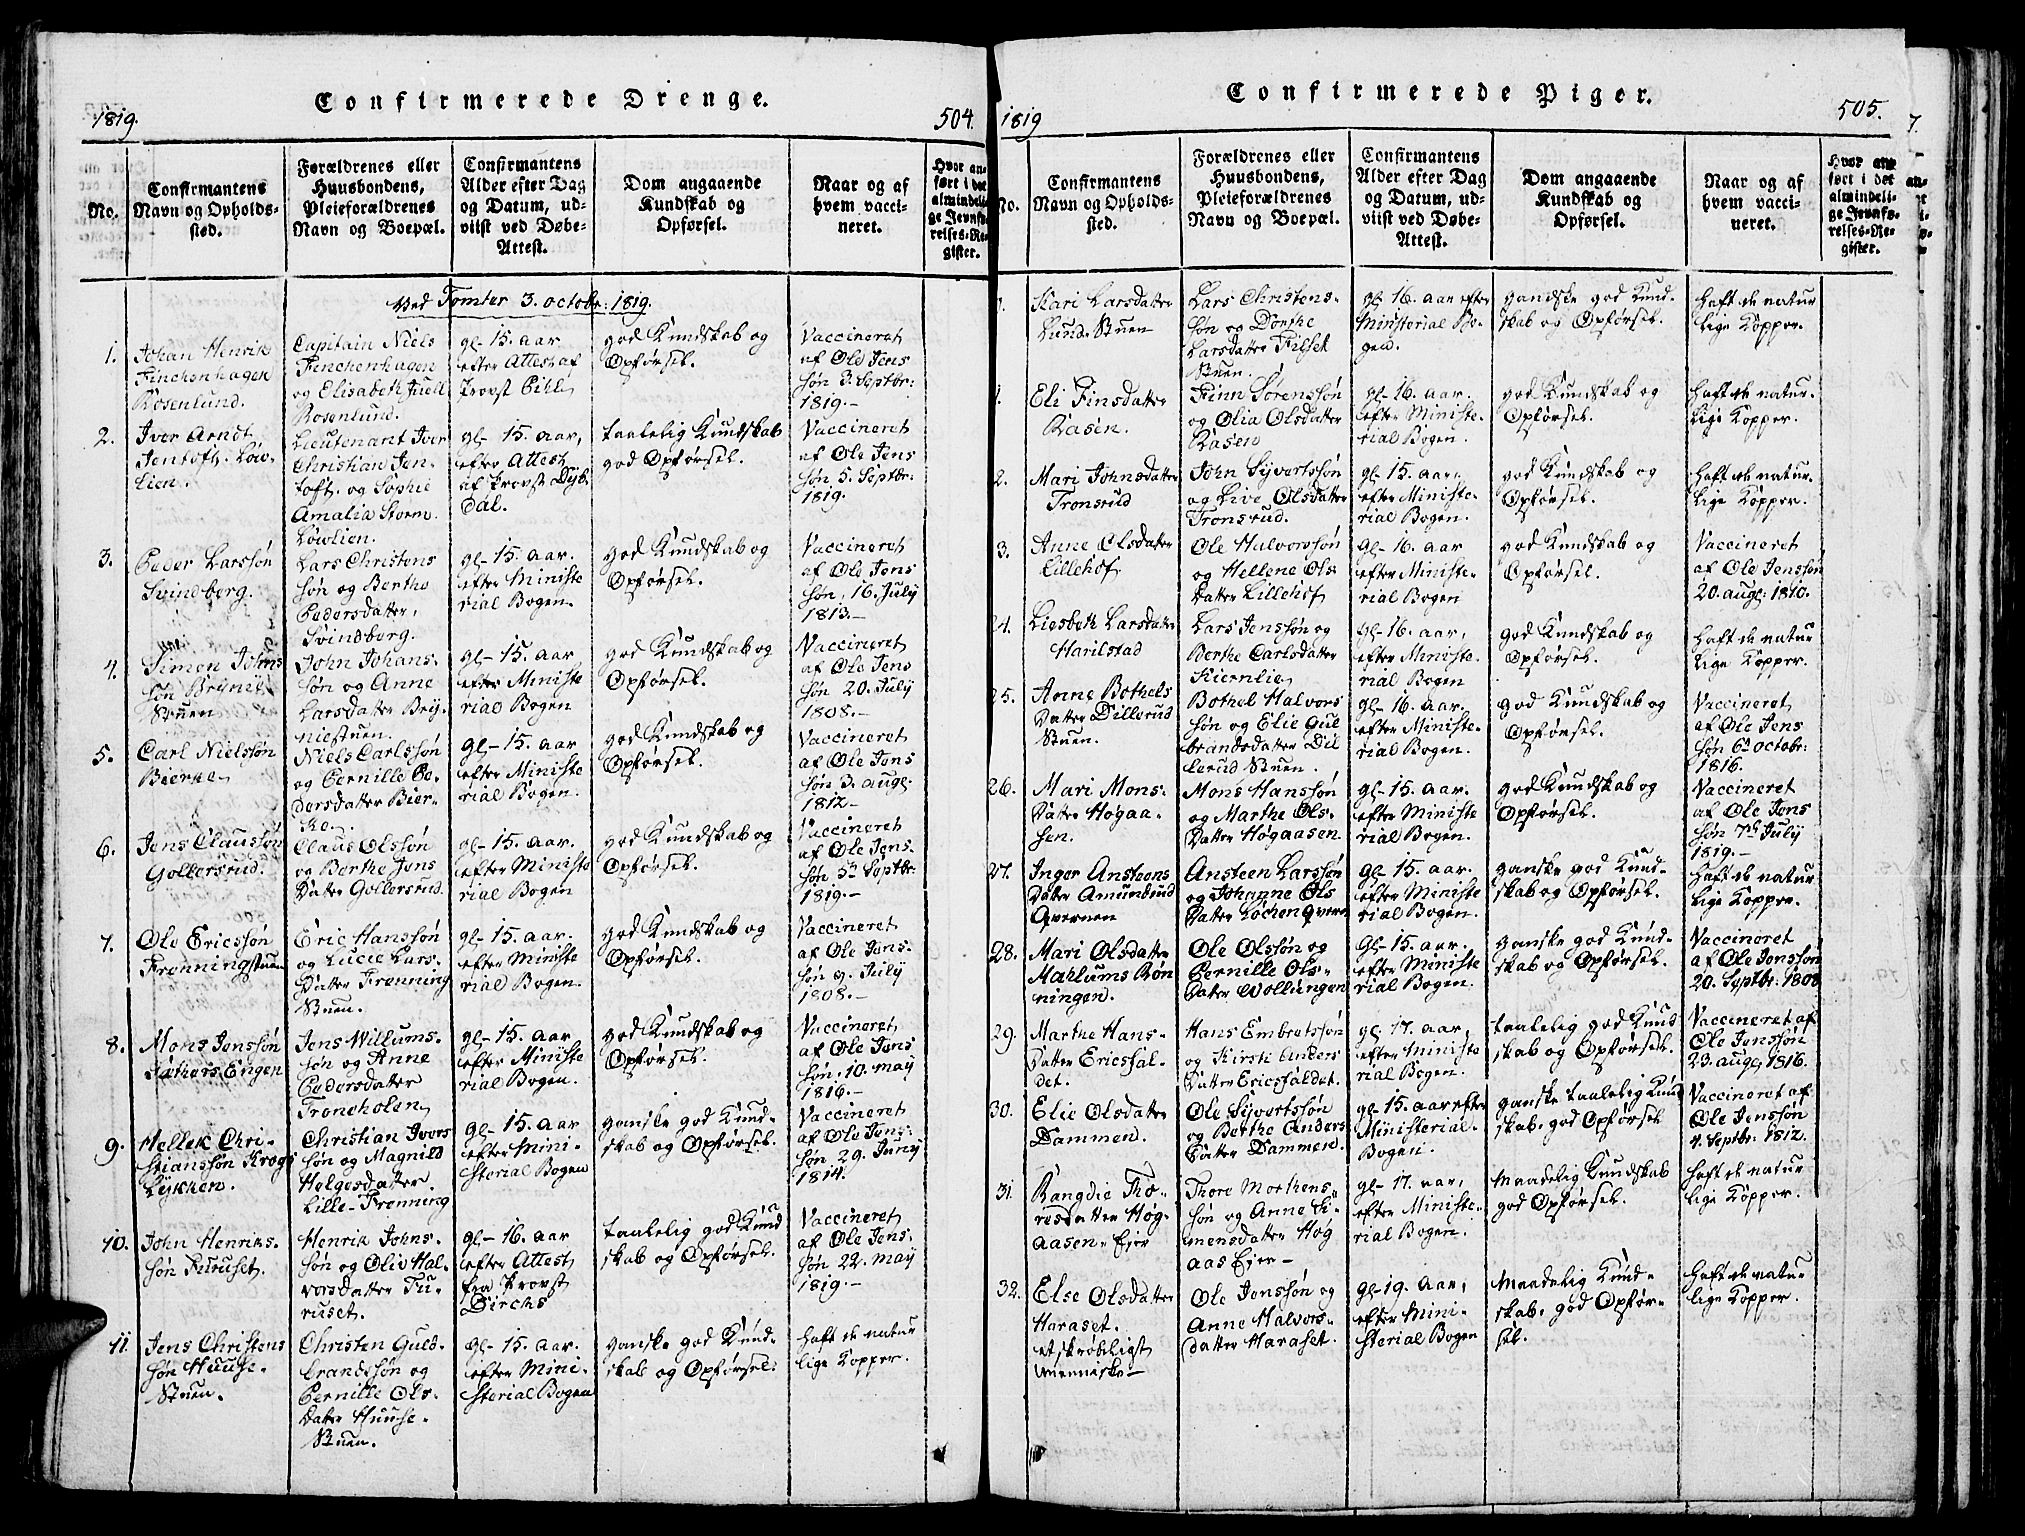 Confirmerede Drenge.
1819.
504.
No.
Confirmantens
Navn og Opholds-
sted.
Forældrenes eller
Huusbondens,
Pleieforældrenes
Navn og Boepæl.
Confirmantens
Alder efter Dag
og Datum, ud-
viist ved Døbe-
Attest.
Dom angaaende
Kundskab og
Opførsel.
Naar og af
hvem vacci-
neret.
Hvor an-
ført i det
almindeli-
ge Jevnfø-
relses-Re-
gister.
Ved Tomter 3. octobr: 1819.
1.
Johan Henrik
Finchenhagen
Rosenlund.
Capitain Niels
Finchenhagen
og Elisabeth Juell
Rosenlund.
gl- 15. aar
efter Attest af
Provst Pihl
god Kundskab og
Opførsel.
Vaccineret
af Ole Jens
søn 3. Septbr:
1819.-
2.
Iver Arndt
Jentoft. Løw-
lien.
Lieutenant Iver
Christian Jen-
toft. og Sophie
Amalia Storm.
Løwlien.
gl- 15. aar,
efter Attest
af Provst Dyb
Dal.
taalelig Kundskab
god Opførsel.
Vaccineret
af Ole Jens
søn 5. Septbr:
1819.
3.
Peder Larssøn
Svindberg.
Lars Christens
søn og Berthe
Pedersdatter,
Svindberg.
gl- 15. aar.
efter Ministe
rial Bogen.
god Kundskab og
Opførsel.
Vaccineret
af Ole Jens
søn, 16. July
1813.-
4.
Simen Johns
søn Brynils
Stuen
John Johans-
søn og Anne
Larsdatter Bry-
nilstuen.
gl- 15. aar
efter Ministe
rial Bogen
god Kundskab og
Opførsel.
Vaccineret
af Ole Jens
søn 20. July
1808.-
5.
Carl Nielssøn
Bierke
Niels Carlssøn
og Pernille Pe-
dersdatter Bier-
ke.
gl- 15. aar
efter Ministe
rial Bogen.
god Kundskab og
Opførsel.
Vaccineret
af Ole Jens
søn 3. aug:
1812-
6.
Jens Claussøn
Gollersrud.
Claus Olssøn
og Berthe Jens
Datter Gollersrud.
gl- 15. aar.
efter Ministe
rial Bogen
god Kundskab og
Opførsel.
Vaccineret
af Ole Jens-
søn 5te Septbr:
1819.-
7.
Ole Ericssøn
Frenningstuen
Eric Hanssøn
og Lucie Lars-
Datter Frenning
Stuen.
gl- 15. aar.
efter Ministe
rial Bogen.
god Kundskab og
Opførsel.
Vaccineret
af Ole Jens-
søn 9. July
1808.-
8.
Mons Jenssøn
Engen
Jens Willums-
søn og Anne
Pedersdatter
Froneholen
gl- 15. aar
efter Ministe
rial Bogen.
god Kundskab og
Opførsel.
Vaccineret
af Ole Jens
søn, 10. may
1816.-
9.
Hellek Chri-
stianssøn Krogs
Lykken.
Christian Ivers
søn og Magnild
Helgesdatter
Lille-Frenning
gl- 15. aar
efter Mini-
sterial Bogen
ganske god Kund-
skab og Opførsel.
Vaccineret
af Ole Jens-
søn 29. Juny
1814.
10.
John Henriks-
søn Furuset.
Henrik Johns-
søn og Oliv Hal-
vorsdatter Fu-
ruset.
gl- 16. aar
efter Attest
fra Provst
Dirchs
taalelig god Kund
skab og Opførsel.
Vaccineret
af Ole Jens-
søn 22. may
1819.-
11.
Jens Christens
søn Huuse-
Stuen.
Christen Guld-
brandssøn og
Pernille Ols-
Datter Huuse-
Stuen.
gl- 15. aar.
efter Mini-
sterial Bogen
ganske god Kund-
skab og Opførsel.
haft de natur
lige Kopper.
Confirmerede Piger.
1819
505.
No.
Confirmantens
Navn og Opholds-
sted.
Forældrenes eller
Huusbondens,
Pleieforældrenes
Navn og Boepæl.
Confirmantens
Alder efter Dag
og Datum, ud-
viist ved Døbe-
Attest.
Dom angaaende
Kundskab og
Opførsel.
Naar og af
hvem vacci-
neret.
Hvor an-
ført i det
almindeli-
ge Jevnfø-
relses-Re-
gister.
Kari Larsdatter
Lunds-Stuen
Lars Christens-
søn og Dorthe
Larsdatter Filset
Stuen.
gl- 16. aar efter
Ministerial Bo-
gen.
gandske god Kund-
skab og Opførsel.
haft de natur
lige Kopper.
Eli Finsdatter
Rasen.
Finn Sørenssøn
og Olia Olsdatter
Rasen
gl- 16. aar.
efter Ministe-
rial Bogen.
god Kundskab og
Opførsel.
haft de natur-
lige Kopper.
2.
Mari Johnsdatter
Tronsrud
John Syvertssøn
og Live Olsdatter
Tronsrud.
gl- 15. aar,
efter Ministe-
rial Bogen.
god Kundskab og
Opførsel.
haft de natur-
lige Kopper.
3.
Anne Olsdatter
Lillehof
Ole Halvorssøn
og Hellene Ols-
Datter Lillehof
gl- 16. aar
efter Ministe-
rial Bogen
god Kundskab og
Opførsel.
Vaccineret
af Ole Jenssøn
20. aug: 1810.
24.
Liesbeth Larsdatter
Harilstad
Lars Jenssøn og
Berthe Carlsdatter
Kiernlie
gl- 16. aar,
efter Ministe-
rial Bogen
god Kundskab og
Opførsel.
haft de natur
lige Kopper.
25.
Anne Bothels
Datter Dillerud
Stuen.
Bothel Halvors
søn og Elie Gul
brandsdatter Dil
lerud Stuen.
gl- 16. aar.
efter Ministe-
rial Bogen.
god Kundskab og
Opførsel.
Vaccineret
af Ole Jens
søn 6te octobr:
1816.
26.
Mari Mons-
Datter Høgaa-
sen.
Mons Hanssøn
og Marthe Ols-
Datter Høgaasen
gl- 15. aar.
efter Ministe
rial Bogen.
god Kundskab og
Opførsel.
Vaccineret
af Ole Jens
søn 7de July
1819.-
27.
Inger Anstens
Datter Amundrud
Qvernen
Ansteen Larssøn
og Johanne Ols
Datter Løchen Qvern
gl- 15. aar.
efter Ministe
rial Bogen.
ganske god Kund-
skab og Opførsel.
haft de natur
lige Kopper.
28.
Mari Olsdatter
Mahlums Røn
ningen.
Ole Olssøn og
Pernille Ols-
Datter Wollungen
gl- 15. aar.
efter Ministe
rial Bogen.
ganske god Kund-
skab og Opførsel.
Vaccineret
af Ole Jenssøn
20. Septbr: 1808
29.
Marthe Hans-
Datter Ericsfal-
det.
Hans Embretssøn
og Kirsti Anders
Datter Ericsfaldet.
gl- 17. aar,
efter Ministe
rial Bogen.
taalelig god Kund
skab og Opførsel.
Vaccineret af
Ole Jenssøn
23. aug: 1816.
30.
Elie Olsdatter
Dammen.
Ole Syvertssøn
og Berthe Anders
Datter Dammen.
gl- 15. aar efter
Ministerial-
Bogen.
ganske taalelig Kund
skab, god Opførsel
Vaccineret af
Ole Jenssøn
4. Septbr: 1812.
31.
Rangdie Tho-
resdatter Høg-
aasen-Eier
Thore Morthens-
søn og Anne Si-
mensdatter Høg
aas Eier-
gl- 17. aar,
efter Ministe-
rial Bogen.
Maadelig Kundskab
god Opførsel.
haft de natur
lige Kopper.
32.
Else Olsdatter
Haraset.
et skrøbeligt
menniske-
Ole Jenssøn og
Anne Halvors-
datter Haraset.
gl- 19. aar,
efter Mini-
sterial Bogen
Maadelig Kund-
skab, god Opfør-
sel.
haft de natur
lige Kopper.